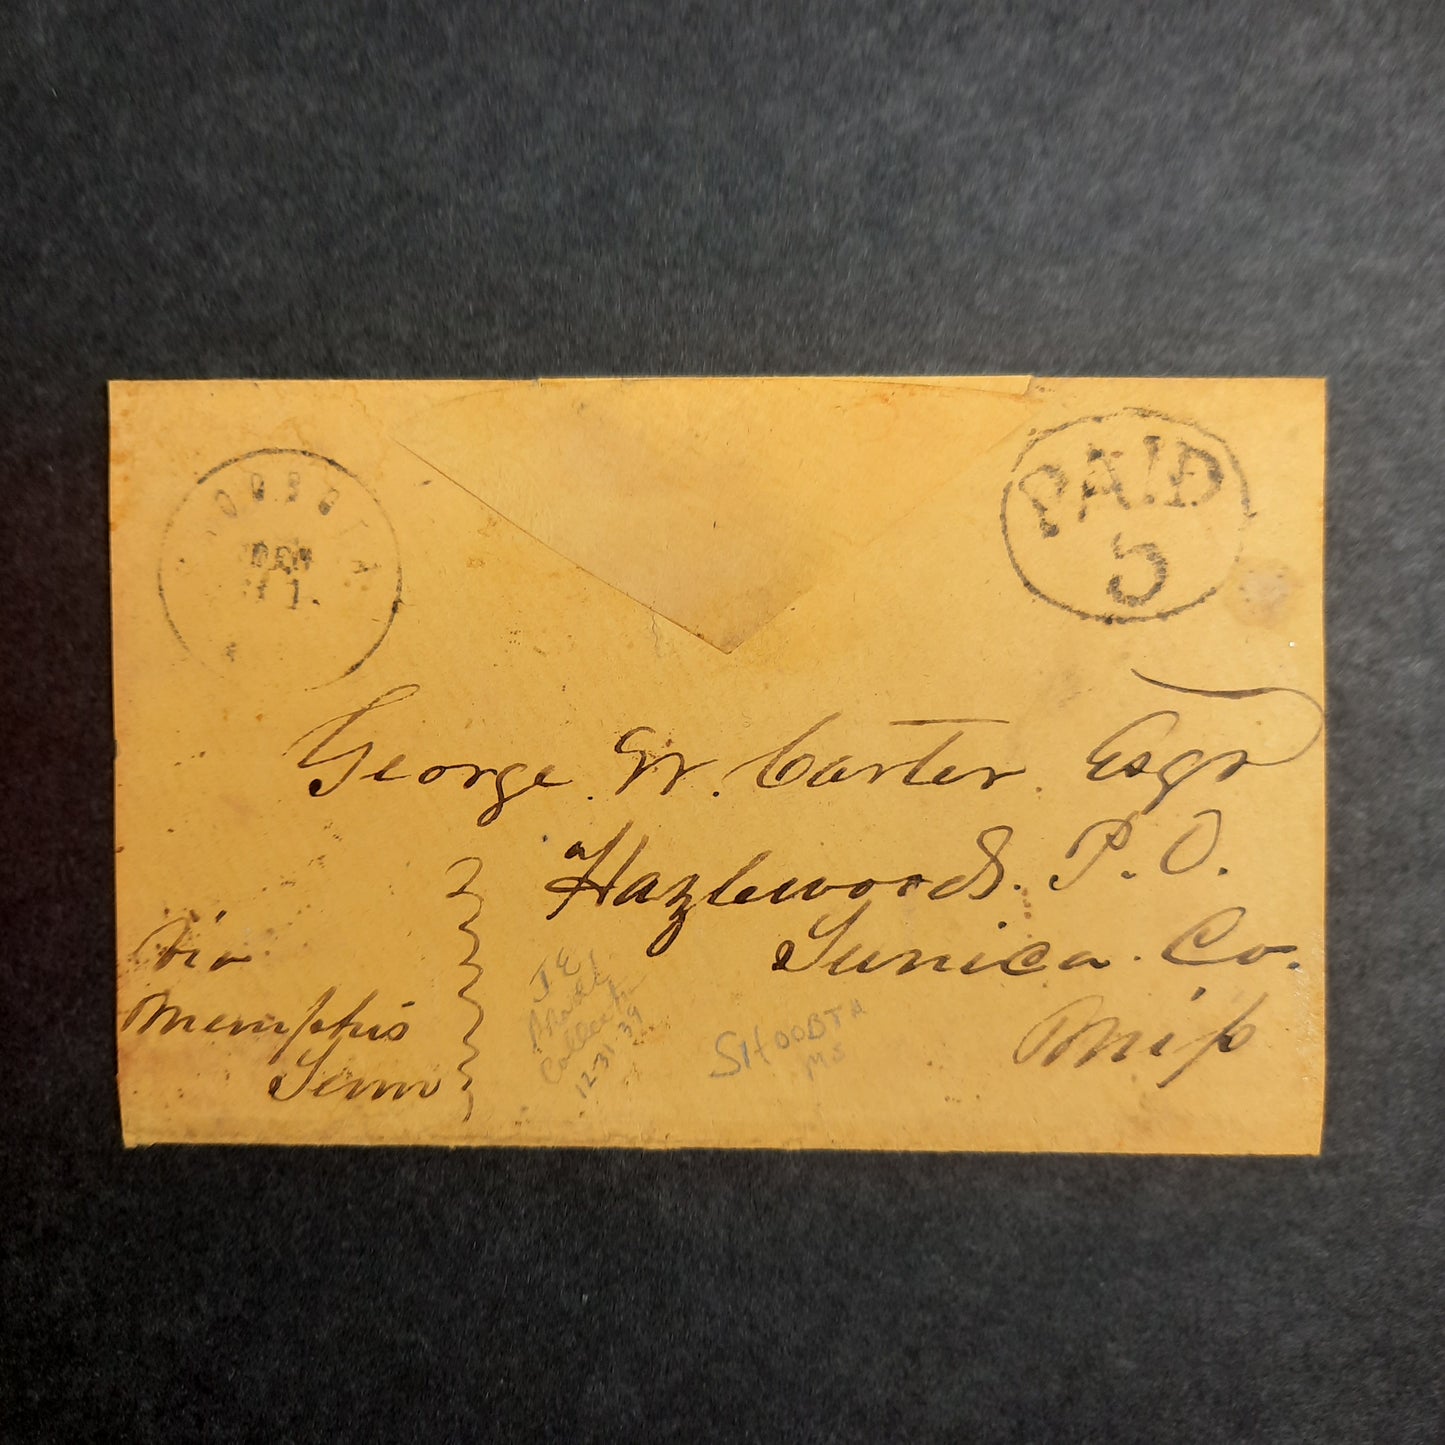 PAID
5
George W. Carter Esqr
Hazlewood P. O.
Tunica Co.
Miſs
Via
Memphis
Tenn
J E
Collection
12-31-39
SHOOBTA
MS